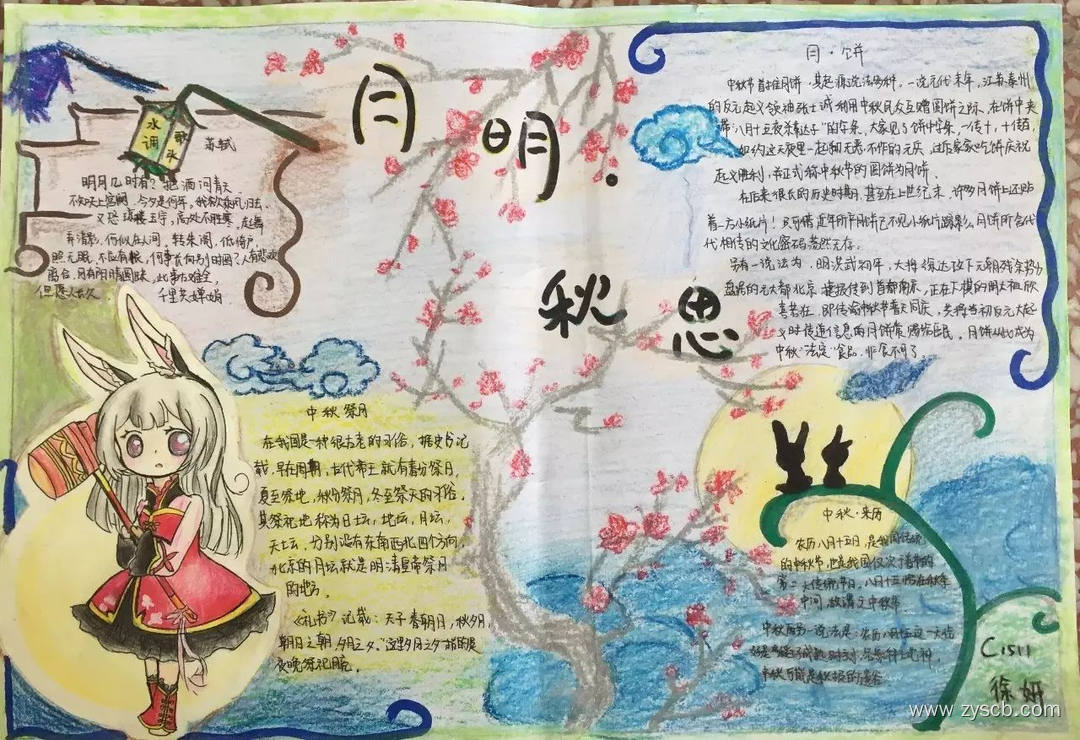 月明·
秋思
水调
歌头
苏轼
明月几时有？把酒问青天
不知天上宫阙，今夕是何年，我欲乘风归去，
又恐琼楼玉宇，高处不胜寒，起舞
弄清影，何似在人间，转朱阁，低绮户，
照无眠，不应有恨，何事长向别时圆？人有悲欢
离合，月有阴晴圆缺，此事古难全，
但愿人长久，千里共婵娟
月·饼
中秋节首推月饼，其起源说法多种，一说元代末年，江苏泰州
的反元起义领袖张士诚利用中秋民众互赠圆饼之际，在饼中夹
带"八月十五夜杀鞑子"的字条，大家见了饼中字条，一传十，十传百，
如约这天夜里一起
起义胜利，并正式称中秋节的圆饼为月饼
在后来很长的历史时期，甚至在上世纪末，许多月饼上还贴
着一方小纸片！只可惜近年所产月饼已不见小纸片踪影，月饼所含代
代相传的文化密码荡然无存。
另有一说法为，明洪武初年，大将徐达攻下元朝残余势力
盘踞的元大都北京，捷报传到首都南京，正在下棋的明太祖欣
喜若狂，即传谕中秋节普天同庆，并将当初反元大起
义时传递信息的月饼赏赐臣民，月饼从此成为
中秋"法定"食品，非食不可了
中秋祭月
在我国是一种很古老的习俗，据史书记
载，早在周朝，古代帝王就有春分祭日，
夏至祭地，秋分祭月，冬至祭天的习俗，
其祭祀地称为日坛，地坛，月坛，
天坛，分别设有东南西北四个方向，
北京的月坛就是明清皇帝祭月
的地方。
《礼书》记载：天子春朝日，秋夕月，
朝日之朝，夕月之夕。"这里夕月之夕指的是
夜晚祭祀月亮。
中秋·来历
农历八月十五日，是我国传统
的中秋节，也是我国仅次于春节的
第二大传统节日，八月十五恰在秋季
中间，故谓之中秋节
中秋
中秋
C1511
徐妍
www.zyscb.com